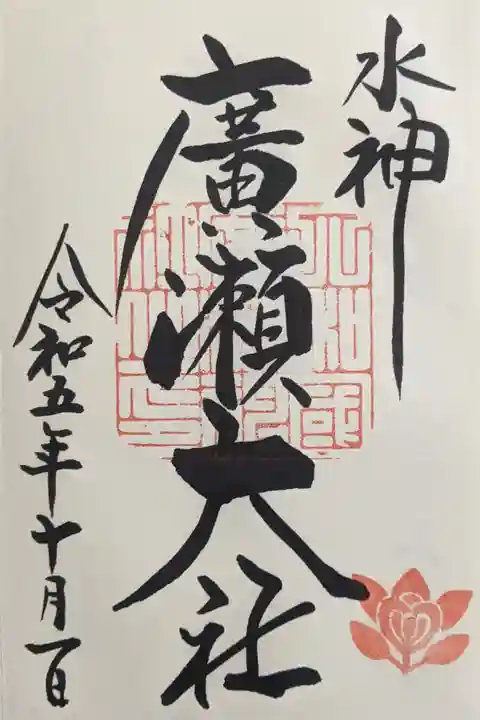 水神
廣瀬大社
令和五年十月一日